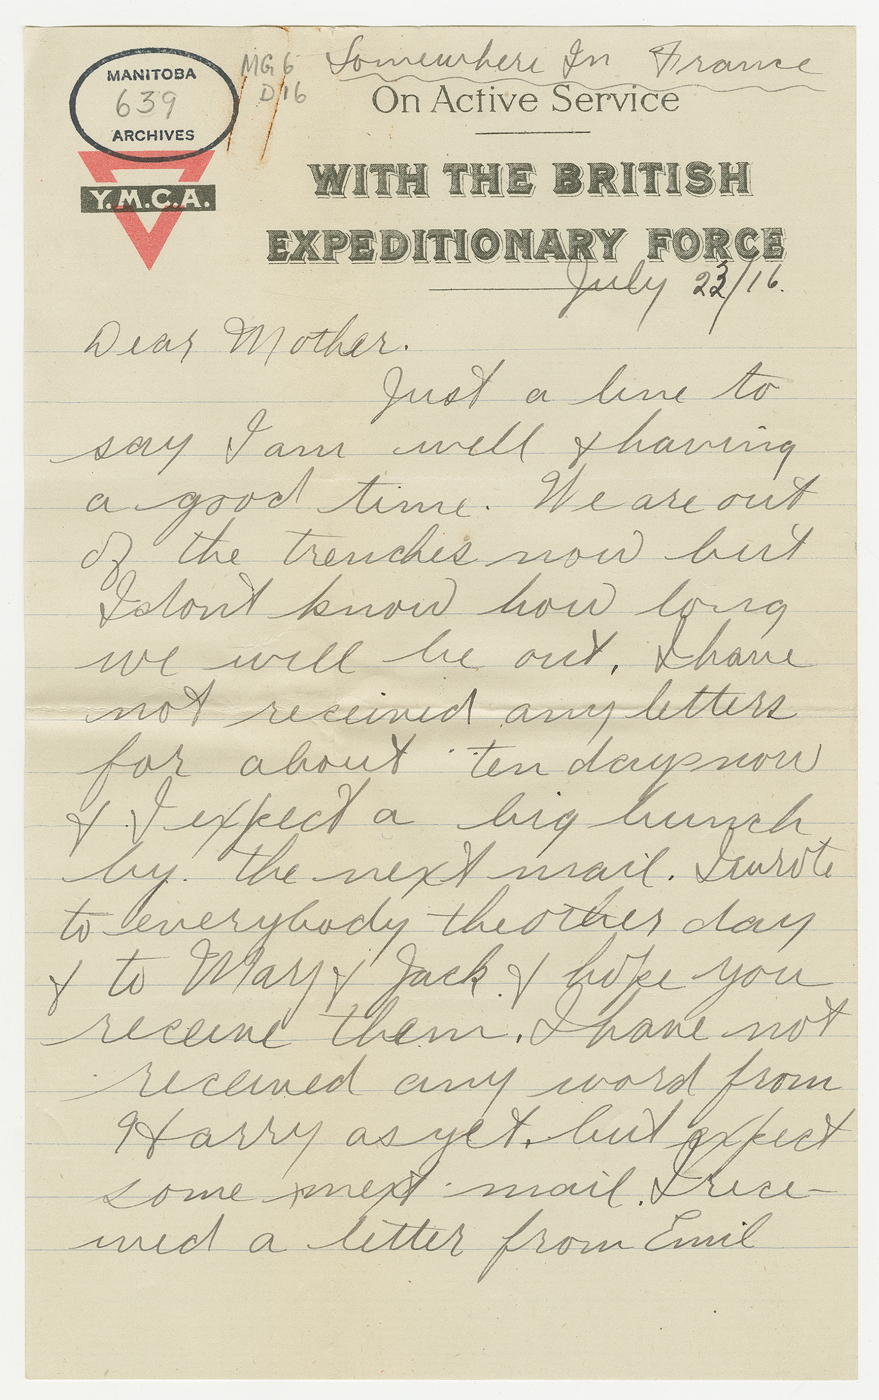 MANITOBA
639
ARCHIVES
MG 6
D 16
Somewhere In France
On Active Service
Y.M.C.A.
WITH THE BRITISH
EXPEDITIONARY FORCE
July 23/16.
Dear Mother.
Just a line to
say I am well & having
a good time. We are out
of the trenches now but
I don't know how long
we will be out. I have
not received any letters
for about ten days now
& I expect a big bunch
by the next mail. I wrote
to everybody the other day
& to Mary & Jack & hope you
receive them. I have not
received any word from
Harry as yet, but expect
some next mail. I rece-
ived a letter from Emil